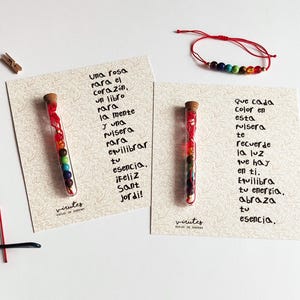 una rosa
para el
corazón,
un libro
para
la mente
y una
pulsera
para
equilibrar
tu
esencia.
¡Feliz
Sant
Jordi!
que cada
color en
esta
pulsera
te
recuerde
la luz
que hay
en ti.
Equilibra
tu energía.
abraza
tu
esencia.